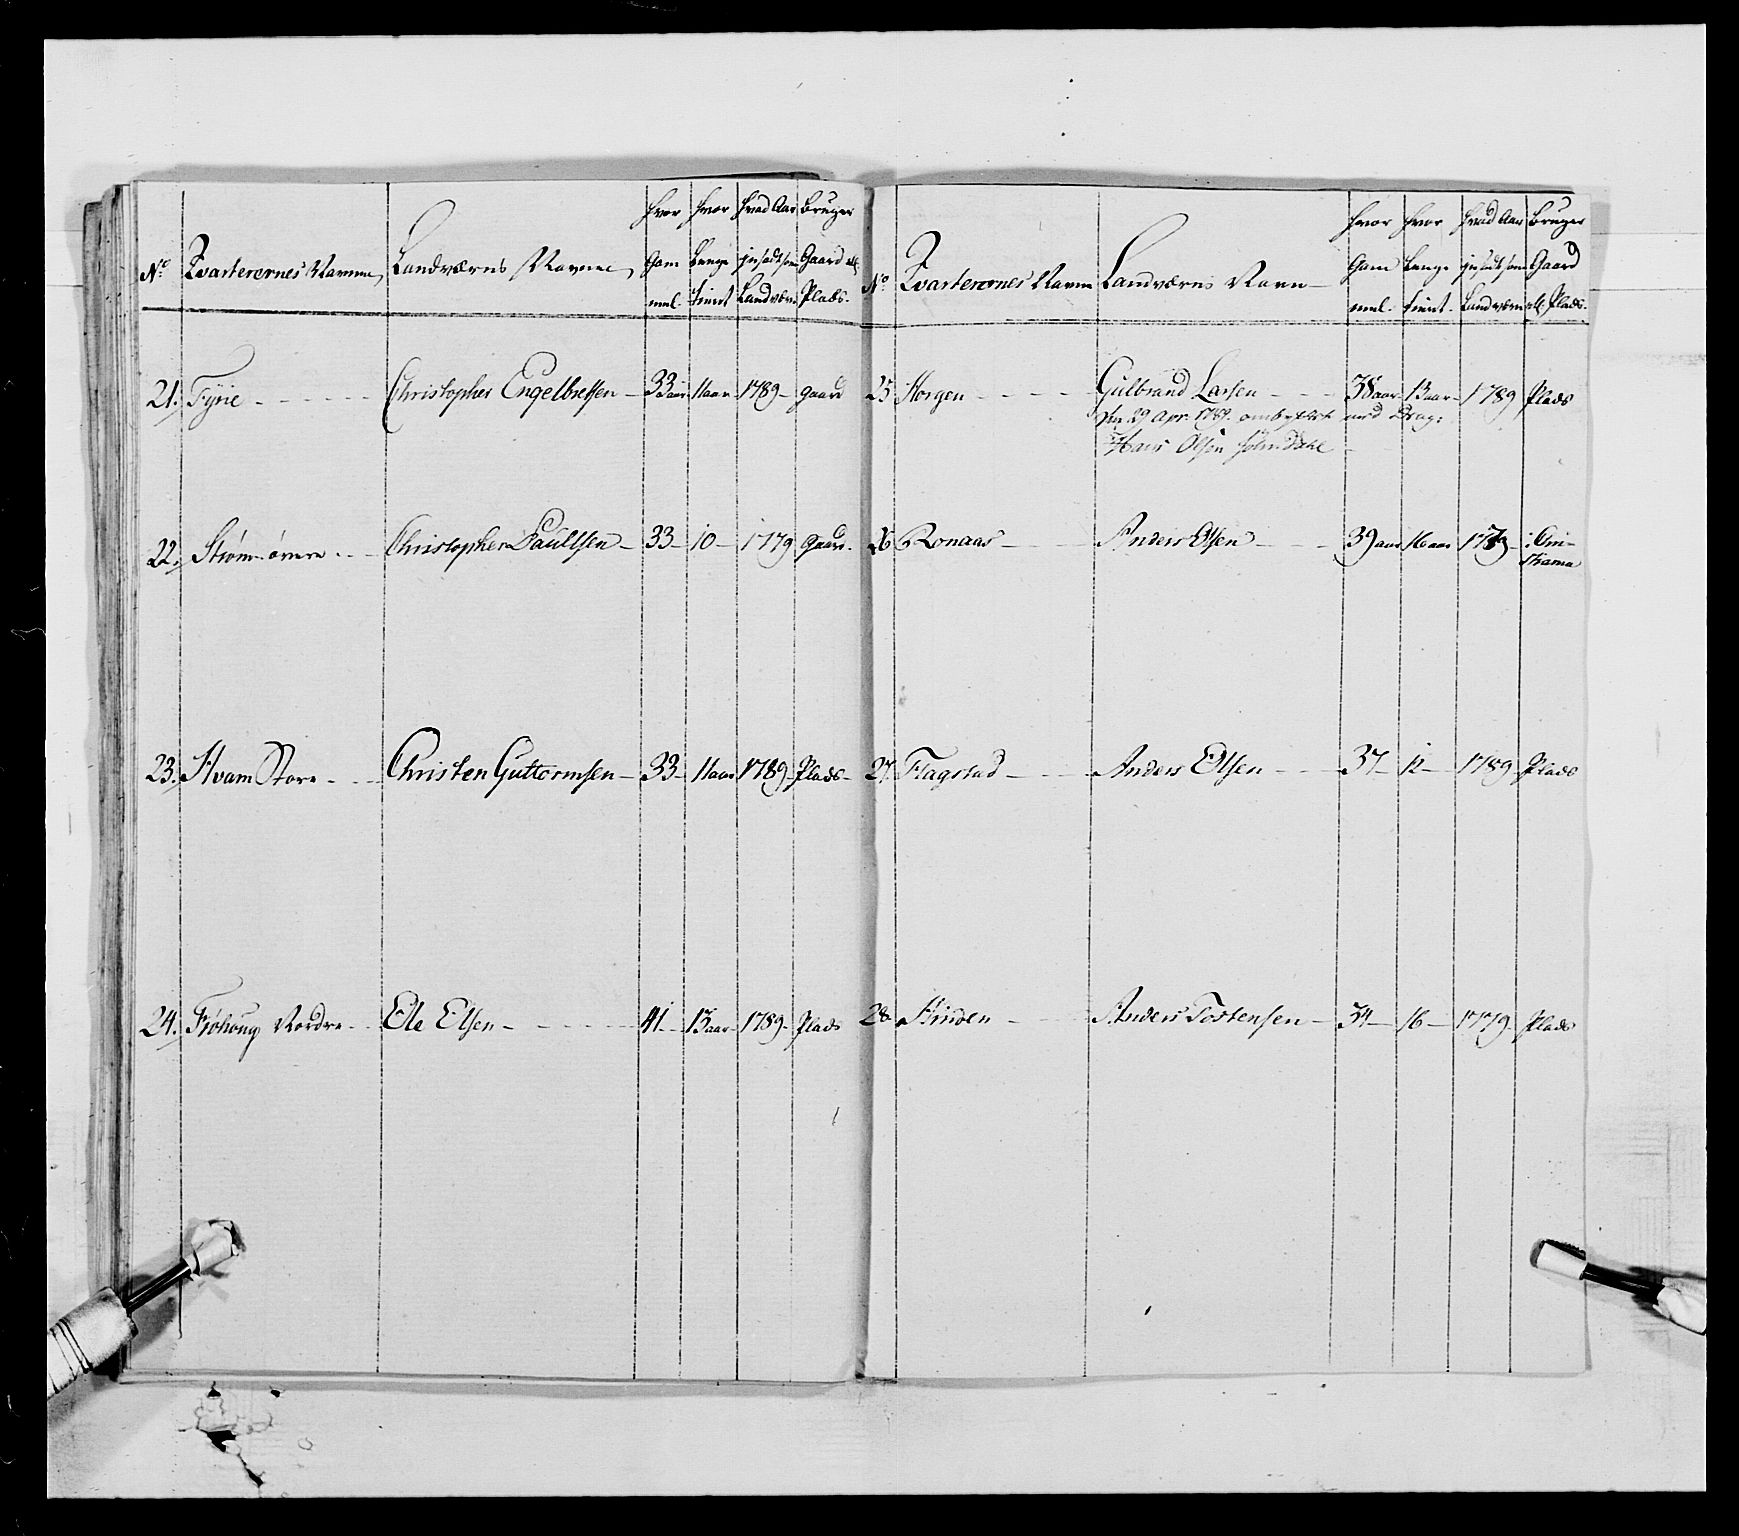 No. Qvarterernes Navne Landværns Navne hvor Gam mel. hvor Længe tient hvad Aar indsadt som Landværn Bruger Gaard ell. Plads.
21. Fÿrie Christopher Engelbretsen 33 aar 11 aar 1789 gaard
22. Strøm øvere Christopher Paulsen 33 10 1779 Gaard
23. Hvam Store Christen Guttormsen 33 11 aar 1789 Plads
24. Frøhoug Nordre Ole Olsen 41 13 aar 1789 Plads
No. Qvarterernes Navne Landværns Navn hvor Gam mel. hvor Længe tient. hvad Aar indsadt som Landværn Bruger Gaard ell. Plads.
25 Horgen Gulbrand Larsen 38 aar 13 aar 1789 Plads
den 29 Apr. 1789. ombyttet med Drag:
Hans Olsen
26 Ronaas Anders Olsen 39 aar 16 aar
27 Flagstad Anders Olsen 37 12 1789 Plads
28 Hinden Anders Tostensen 34 16 1779 Plads